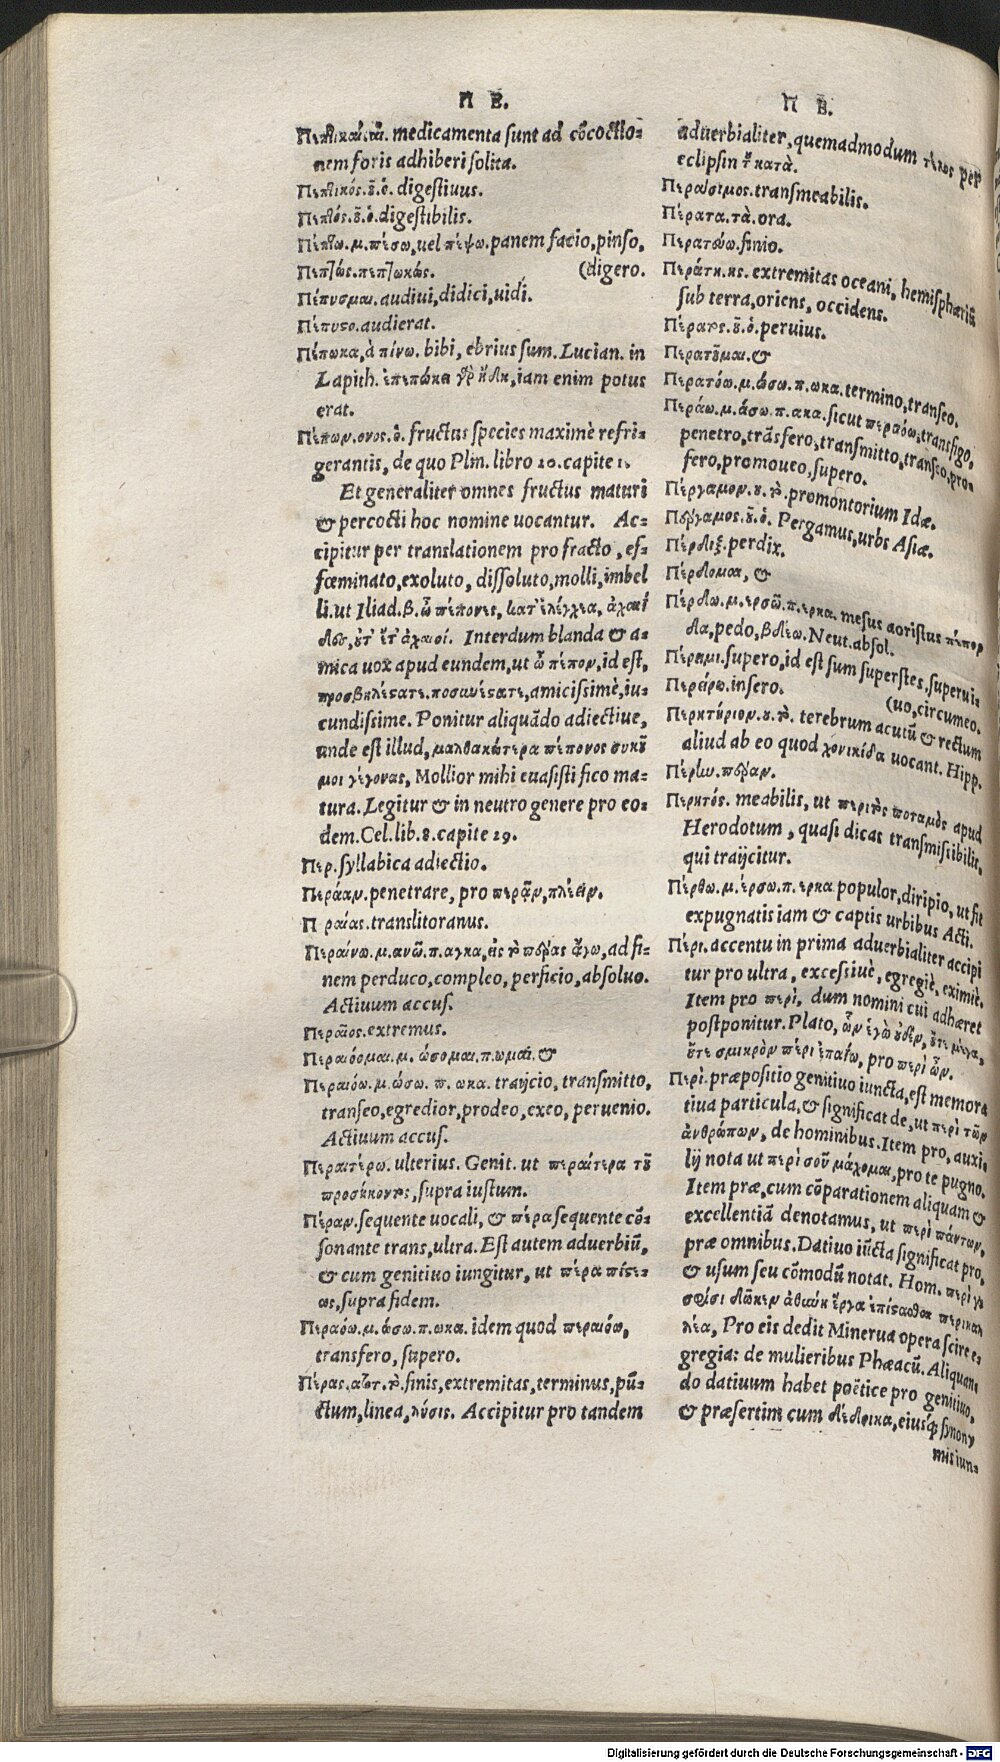 Π Ε.
Πεπτικαί.αἱ. medicamenta sunt ad cõcoctio-
nem foris adhiberi solita.
Πεπτικός.οῦ.ὁ. digestiuus.
Πεπτός.οῦ.ὁ. digestibilis.
Πέπτω.μ.πέσω, uel πέψω. panem facio, pinso,
Πεπτώς. πεπτωκώς. (digero.
Πέπυσμαι. audiui, didici, uidi.
Πέπυστο. audierat.
Πέπωκα, ἀ πίνω. bibi, ebrius sum. Lucian. in
Lapith. ἐπεπώκει γὰρ ἤδη, iam enim potus
erat.
Πέπων.ονος.ὁ. fructus species maximè refri-
gerantis, de quo Plin. libro 20. capite 1.
Et generaliter omnes fructus maturi
& percocti hoc nomine uocantur. Ac-
cipitur per translationem pro fracto, ef-
fœminato, exoluto, dissoluto, molli, imbel
li. ut Iliad.β. ὦ πέπονες, κατ' ἐλέγχεα, ἀχαιί
δες, οὐτ' ἔτ' ἀχαιοί. Interdum blanda & a-
mica uox apud eundem, ut ὦ πέπον, id est,
amicissimè, iu-
cundissime. Ponitur aliquãdo adiectiue,
unde est illud, μαλθακώτερα πέπονος συκοῦ
μοι γέγονας, Mollior mihi euasisti fico ma-
tura. Legitur & in neutro genere pro eo-
dem. Cel. lib. 8. capite 29.
Περ. syllabica adiectio.
Περάαν. penetrare, pro περᾷν, πλέειν.
Π ραίας. translitoranus.
Περαίνω.μ.ανῶ.π.αγκα, εἰς τὸ πέρας ἄγω, ad fi-
nem perduco, compleo, perficio, absoluo.
Actiuum accus.
Περαῖος. extremus.
Περαιόομαι.μ. ώσομαι.π.ωμαι. &
Περαιόω.μ.ώσω. π. ωκα. traijcio, transmitto,
transeo, egredior, prodeo, exeo, peruenio.
Actiuum accus.
Περαιτέρω. ulterius. Genit. ut περαιτέρω τοῦ
προσήκοντος, supra iustum.
Πέραν. sequente uocali, & πέρα sequente cõ-
sonante trans, ultra. Est autem aduerbiũ,
& cum genitiuo iungitur, ut πέρα πίστε-
ως, supra fidem.
Περαόω.μ.ώσω.π.ωκα. idem quod περαιόω,
transfero, supero.
Πέρας.ατος.τὸ. finis, extremitas, terminus, pũ-
ctum, linea, λύσις. Accipitur pro tandem
Π Ε.
aduerbialiter, quemadmodum τέλος per
eclipsin τοῦ κατὰ.
Περάσιμος. transmeabilis.
Πέρατα.τὰ. ora.
Περατεύω. finio.
Περάτη.ης. extremitas oceani, hemisphæriũ
sub terra, oriens, occidens.
Πέρατος.οῦ.ὁ. peruius.
Περατοῦμαι. &
Περατόω.μ.ώσω.π.ωκα. termino, transeo.
Περάω.μ.άσω.π.ακα. sicut περαόω, transfigo,
penetro, trãsfero, transmitto, transeo, pro-
fero, promoueo, supero.
Πέργαμον.ου.τὸ. promontorium Idæ.
Πέργαμος.ου.ὁ. Pergamus, urbs Asiæ.
Πέρδιξ. perdix.
Πέρδομαι, &
Πέρδω.μ.ερσῶ.π.ερκα. mesus aoristus πέπορ
δα, pedo, βδέω. Neut. absol.
Περίειμι. supero, id est sum superstes, superui-
Περείρω. insero. (uo, circumeo.
Περητύριον.ου.τὸ. terebrum acutũ & rectum
aliud ab eo quod χονικίδα uocant. Hipp.
Πέρην. πέραν.
Περητός. meabilis, ut περητὸς ποταμὸς apud
Herodotum, quasi dicas transmissibilis,
qui traijcitur.
Πέρθω.μ.έρσω.π.ερκα populor, diripio, ut fit
expugnatis iam & captis urbibus Acti.
Πέρι. accentu in prima aduerbialiter accipi
tur pro ultra, excessiuè, egregiè, eximiè.
Item pro περὶ, dum nomini cui adhæret
postponitur. Plato, ὧν ἐγὼ οὐδὲν, οὔτε μέγα,
οὔτε σμικρὸν πέρι ἐπαΐω, pro περὶ ὧν.
Περὶ. præpositio genitiuo iuncta, est memora
tiua particula, & significat de, ut περὶ τῶν
ἀνθρώπων, de hominibus. Item pro, auxi-
lij nota ut περὶ σοῦ μάχομαι, pro te pugno.
Item præ, cum cõparationem aliquam &
excellentiã denotamus, ut περὶ πάντων,
præ omnibus. Datiuo iũcta significat pro,
& usum seu cõmodũ notat. Hom. περὶ γὰ
σφίσι δῶκεν ἀθήνη ἔργα ἐπίστασθαι περικαλ
λέα, Pro eis dedit Minerua opera scire e-
gregia: de mulieribus Phæacũ. Aliquan
do datiuum habet poëtice pro genitiuo,
& præsertim cum δέδοικα, eiusq; synony
mis iun-
Digitalisierung gefördert durch die Deutsche Forschungsgemeinschaft - DFG